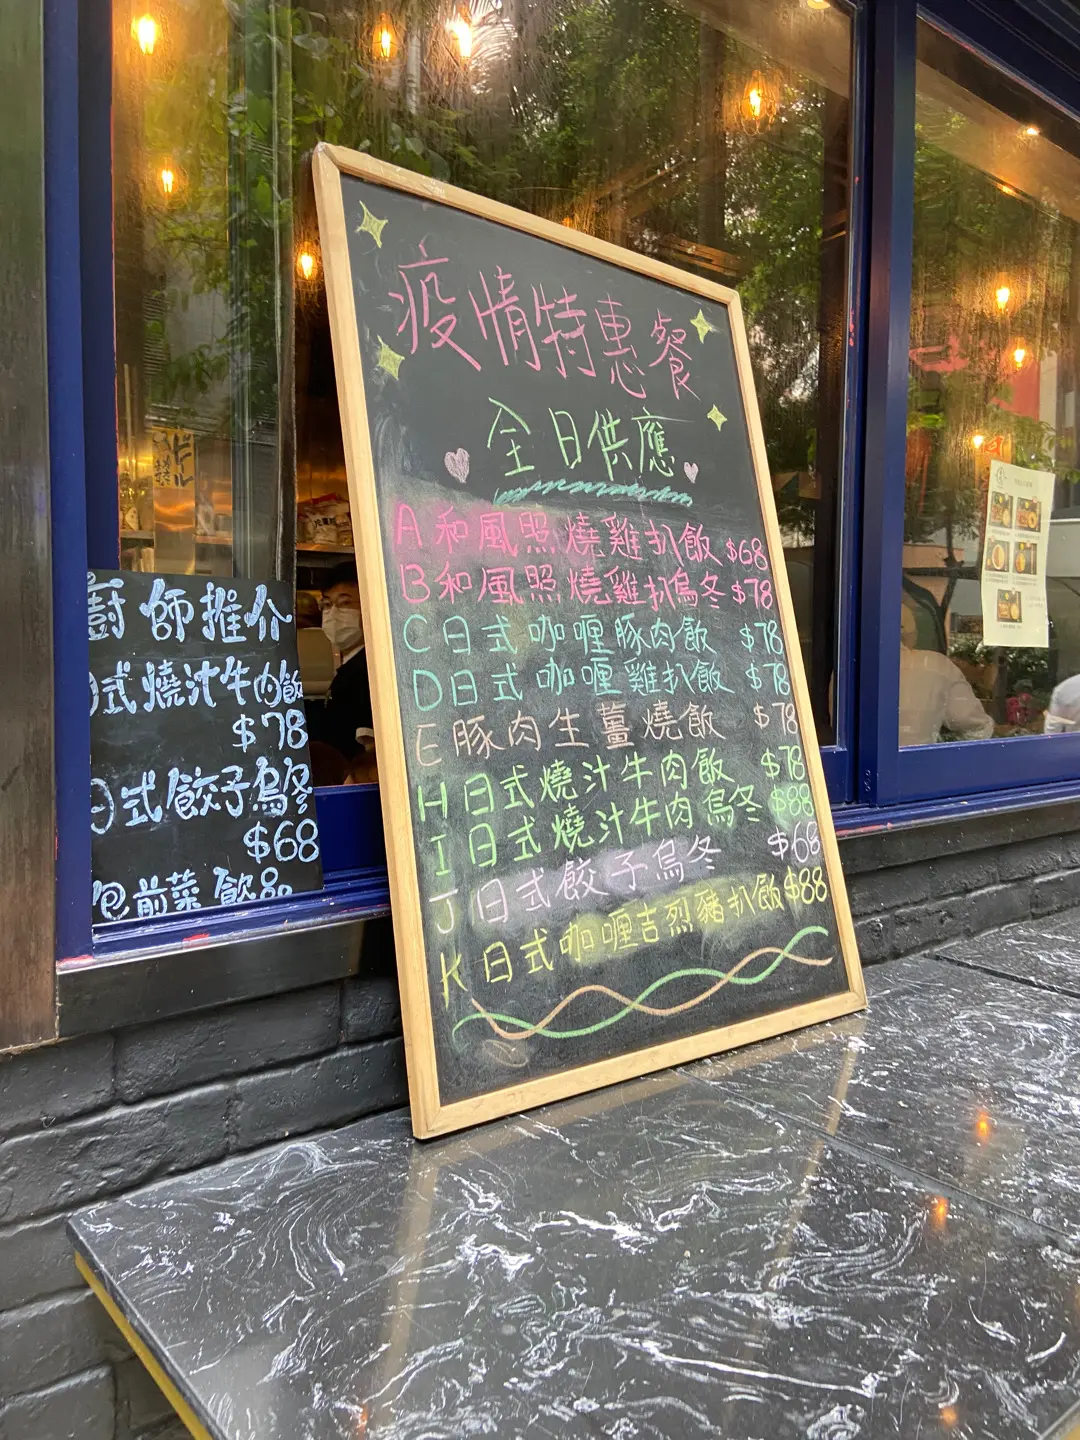 疫情特惠餐
全日供應
A 和風照燒雞扒飯 $68
B 和風照燒雞扒烏冬 $78
C 日式咖喱豚肉飯 $78
D 日式咖喱雞扒飯 $78
E 豚肉生薑燒飯 $78
H 日式燒汁牛肉飯 $78
I 日式燒汁牛肉烏冬 $88
J 日式餃子烏冬 $68
K 日式咖喱吉烈豬扒飯 $88
廚師推介
日式燒汁牛肉飯
$78
日式餃子烏冬
$68
包前菜飲品